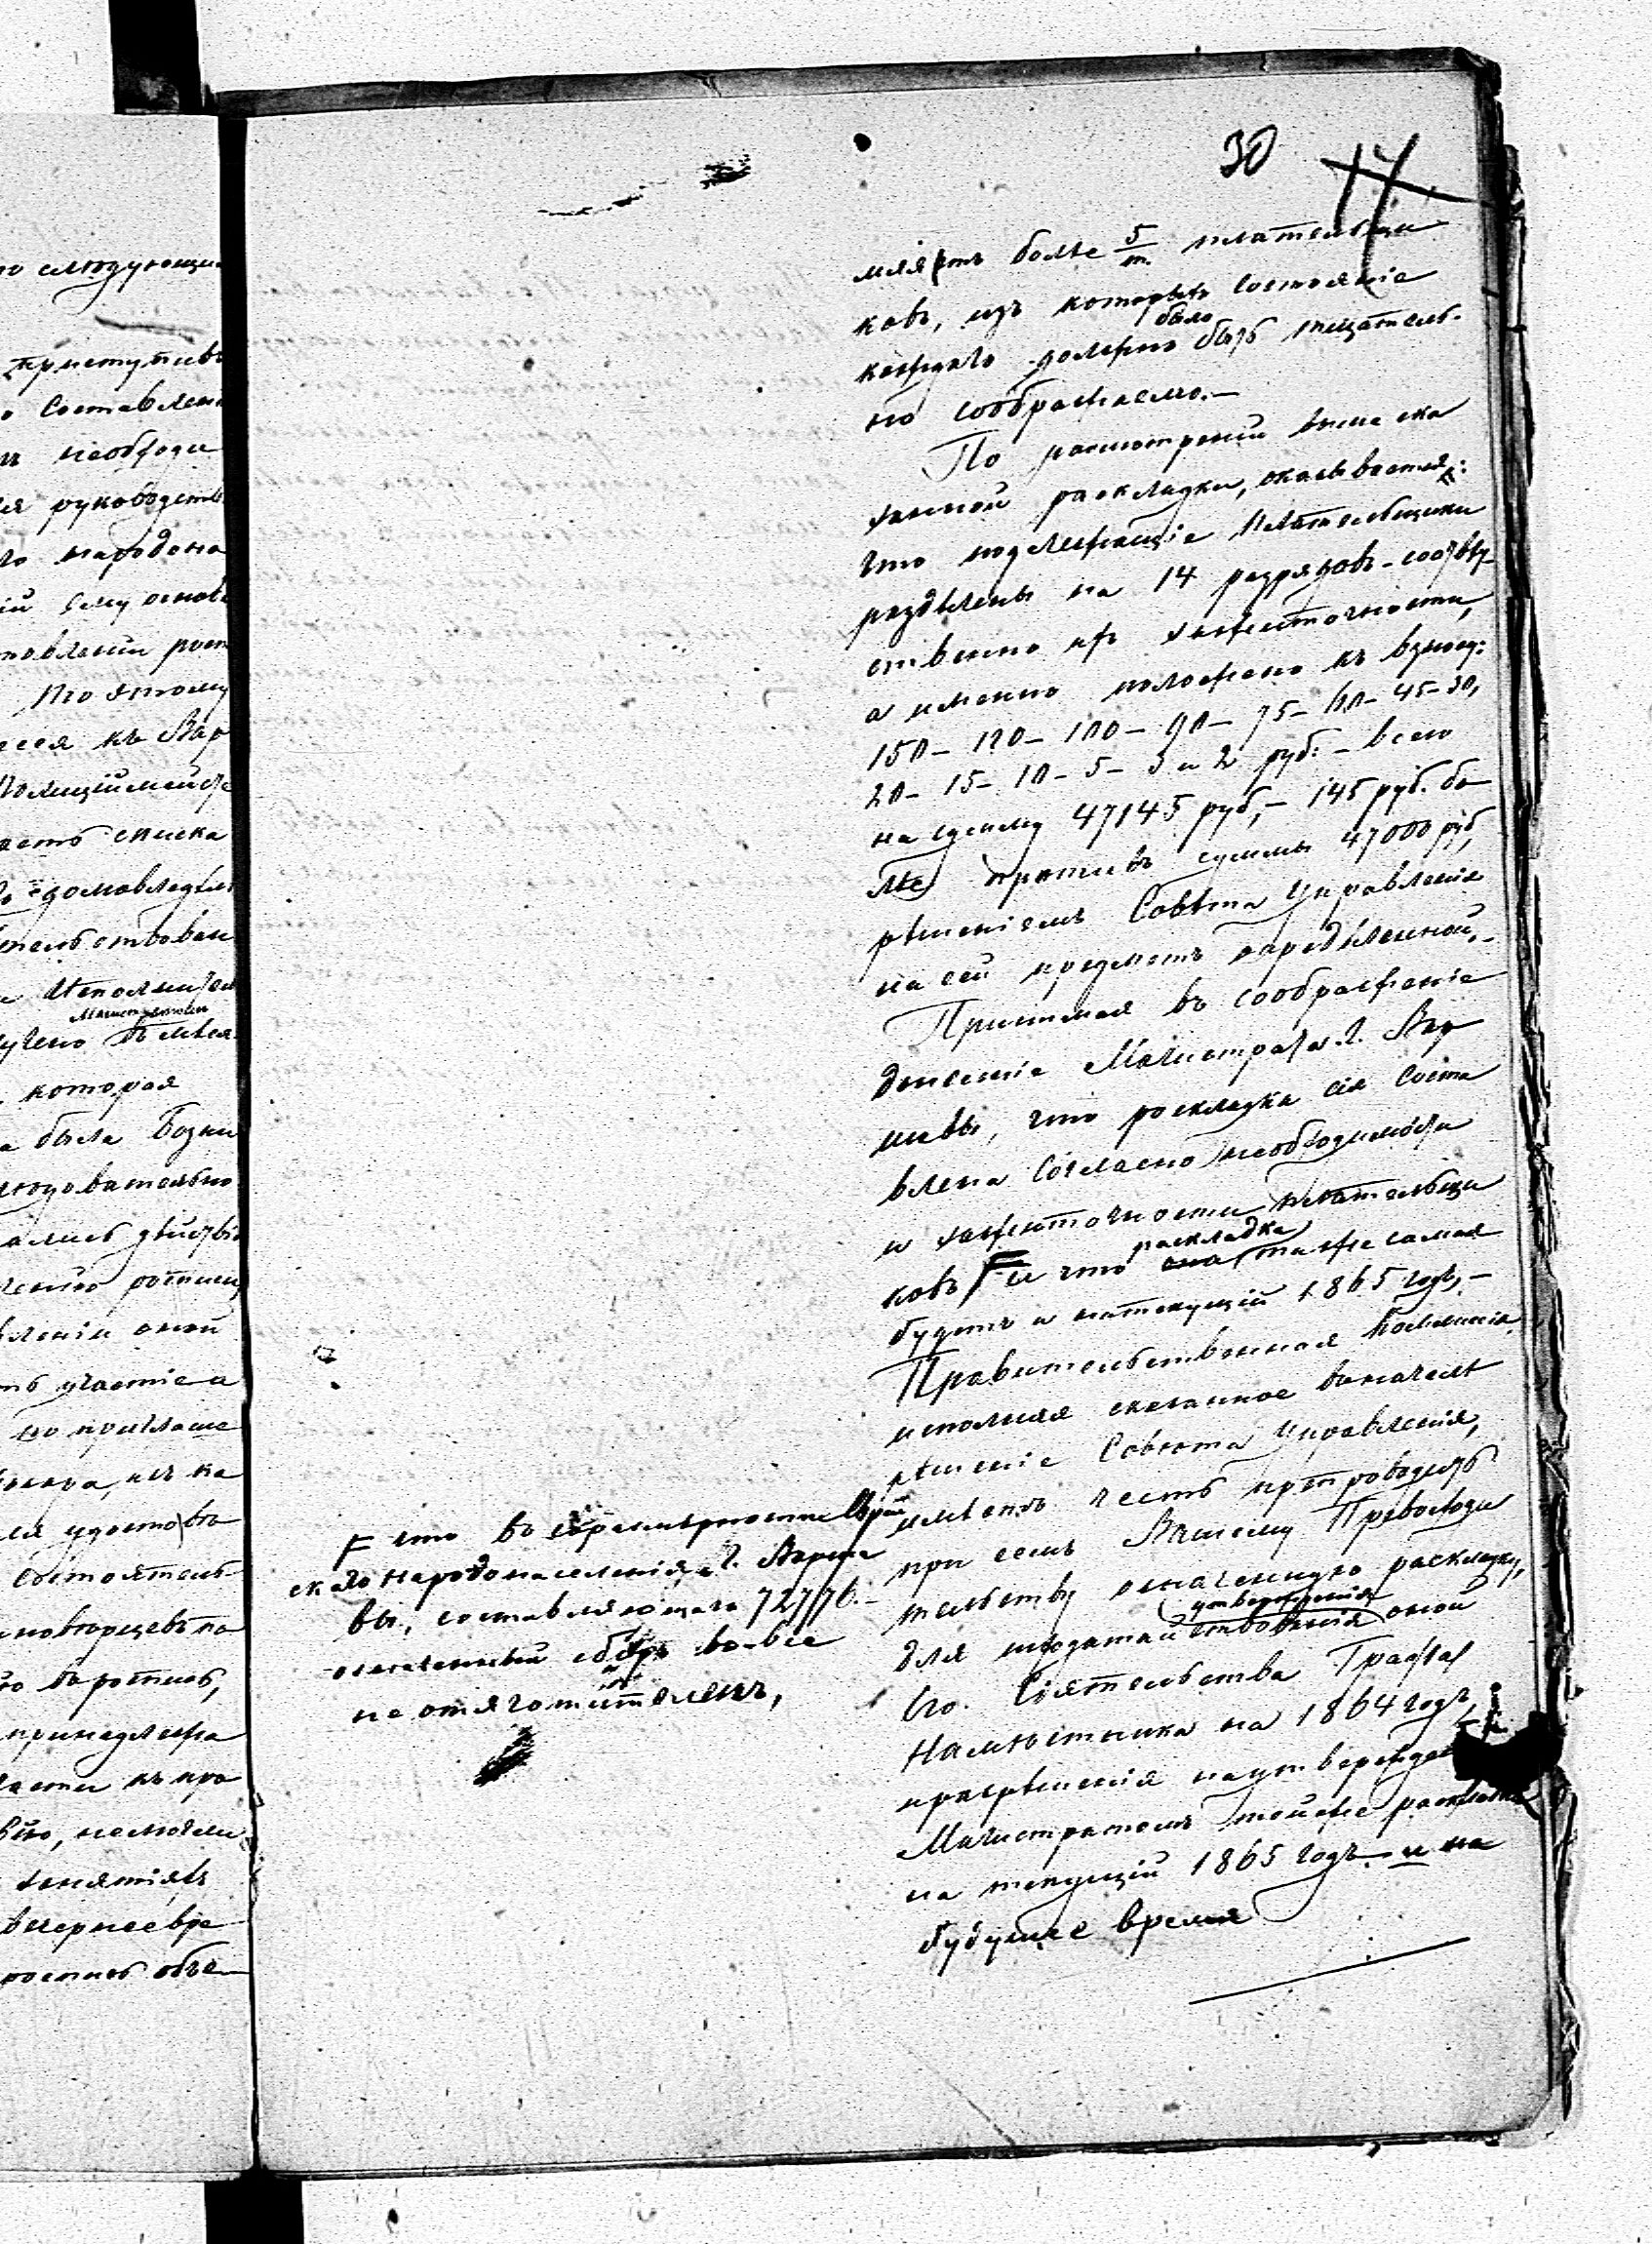 30 14
млятъ болѣе 5/т. плательщи
ковъ, изъ которыхъ состояніе
каждаго должно было быть тщатель-
но соображаемо.—
По разсмотреніи выше ска
занной раскладки, оказывается:
что подлежащіе плательщики
раздѣлены на 14 разрядовъ - соотвѣт
ственно ихъ зажиточности,
а именно положено къ взносу:
150 - 120 - 100 - 90 - 75 - 60 - 45 - 30,
20 - 15 - 10 - 5 - 3 и 2 руб: - всего
на сумму 47145 руб, - 145 руб. бо
лѣе противъ суммы 47000 руб,
рѣшеніемъ Совѣта Управленія
на сей предметъ определенной,-
Принимая въ соображеніе
донесеніе Магистрата г. Вар
шавы, что раскладка сія соста
влена согласно необходимости
и зажиточности плательщи
ковъ F и что раскладка таже самая
будетъ и на текущій 1865 годъ,-
Правительственная Коммисія
исполняя сказанное въ началѣ
рѣшеніе Совѣта Управленія,
имѣетъ честь препроводить
при семъ Вашему Превосходи
тельству означенную раскладку,
для исходатайствованія утвержденія оной
Его Сіятельства Графа
Намѣстника на 1864 годъ,
и разрѣшенія на утвержде
Магистратомъ той же раскладки
на текущій 1865 годъ и на
будущее время
F что въ соразмѣрности Еврей
скаго народонаселенія г. Варша
вы, составляющаго 72776.-
означенный сборъ вовсе
не отяготителенъ,
о слѣдующи
приступивъ
о составлен
необходи
я руководств
го народона
ему основ
новленіи рос
По этому
еся къ Вар
Полиціймейсте
списка
домовладѣл
тельствован
Исполнител
Магистратомъ
учено
которая
а была
слѣдовательно
ались дѣйстві
росписи
вленіи оной
ть участіе и
его приглаше
на
ся удостовѣ
состоятель
въ роспись,
принадлежа
насти къ про
занятіяхъ
вечернее вре
роспись объе